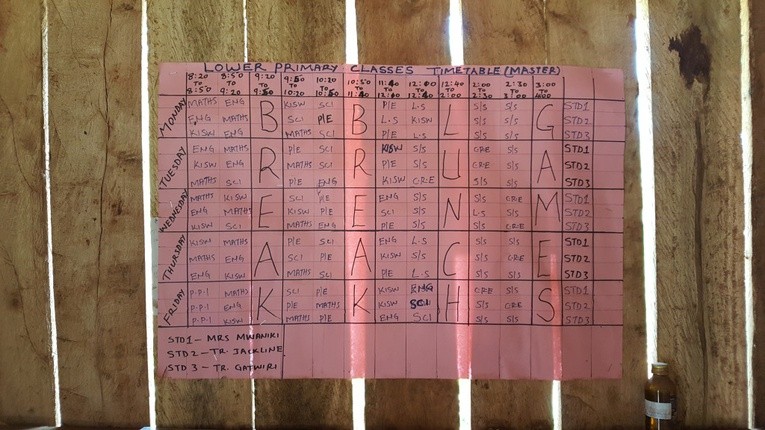 LOWER PRIMARY CLASSES TIMETABLE (MASTER)
8:20 TO 8:50 8:50 TO 9:20 9:20 TO 9:50 9:50 TO 10:20 10:20 TO 10:50 10:50 TO 11:40 TO 12:00 12:00 TO 12:40 12:40 TO 2:00 2:00 TO 2:30 2:30 TO 3:00 3:00 TO 4:00
MONDAY MATHS ENG B KISW SCI B P/E L.S L S/S S/S G STD1
ENG MATHS SCI P/E L.S KISW S/S S/S STD2
KISW ENG MATHS SCI P/E L.S S/S S/S STD3
TUESDAY ENG MATHS R P/E SCI R KISW S/S U CRE S/S A STD1
KISW ENG MATHS SCI P/E S/S CRE S/S STD2
MATHS SCI P/E ENG KISW CRE S/S S/S STD3
WEDNESDAY MATHS KISW E SCI P/E E ENG S/S N S/S CRE M STD1
ENG MATHS KISW P/E SCI S/S L.S S/S STD2
KISW SCI MATHS ENG P/E S/S S/S CRE STD3
THURSDAY KISW MATHS A P/E SCI A ENG L.S C S/S S/S E STD1
MATHS ENG SCI P/E KISW S/S S/S CRE STD2
ENG KISW MATHS SCI P/E L.S S/S S/S STD3
FRIDAY P.P.I MATHS K SCI P/E K KISW ENG H CRE S/S S STD1
P.P.I ENG P/E MATHS KISW SCI S/S CRE STD2
P.P.I KISW MATHS P/E ENG SCI S/S S/S STD3
STD1 - MRS MWANIKI
STD2 - TR. JACKLINE
STD 3 - TR. GATWIRI